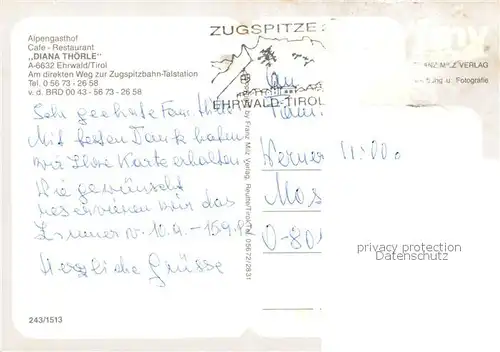 Alpengasthof
Café - Restaurant
„DIANA THÖRLE"
A-6632 Ehrwald/Tirol
Am direkten Weg zur Zugspitzbahn-Talstation
Tel. 0 56 73 - 26 58
v. d. BRD 00 43 - 56 73 - 26 58
ZUGSPITZE
EHRWALD-TIROL
MILZ VERLAG
u. Fotografie
by Franz Milz Verlag, Reutte/Tirol, Tel. 05672/2831
Sehr geehrte Fam.
Mit besten Dank haben
wir Ihre Karte erhalten.
Wie gewünscht
reservieren wir das
Zimmer v. 10.9. – 15.9.
Herzliche Grüsse
An
Fam.
Werner
Mos
0-80
243/1513
privacy protection
Datenschutz